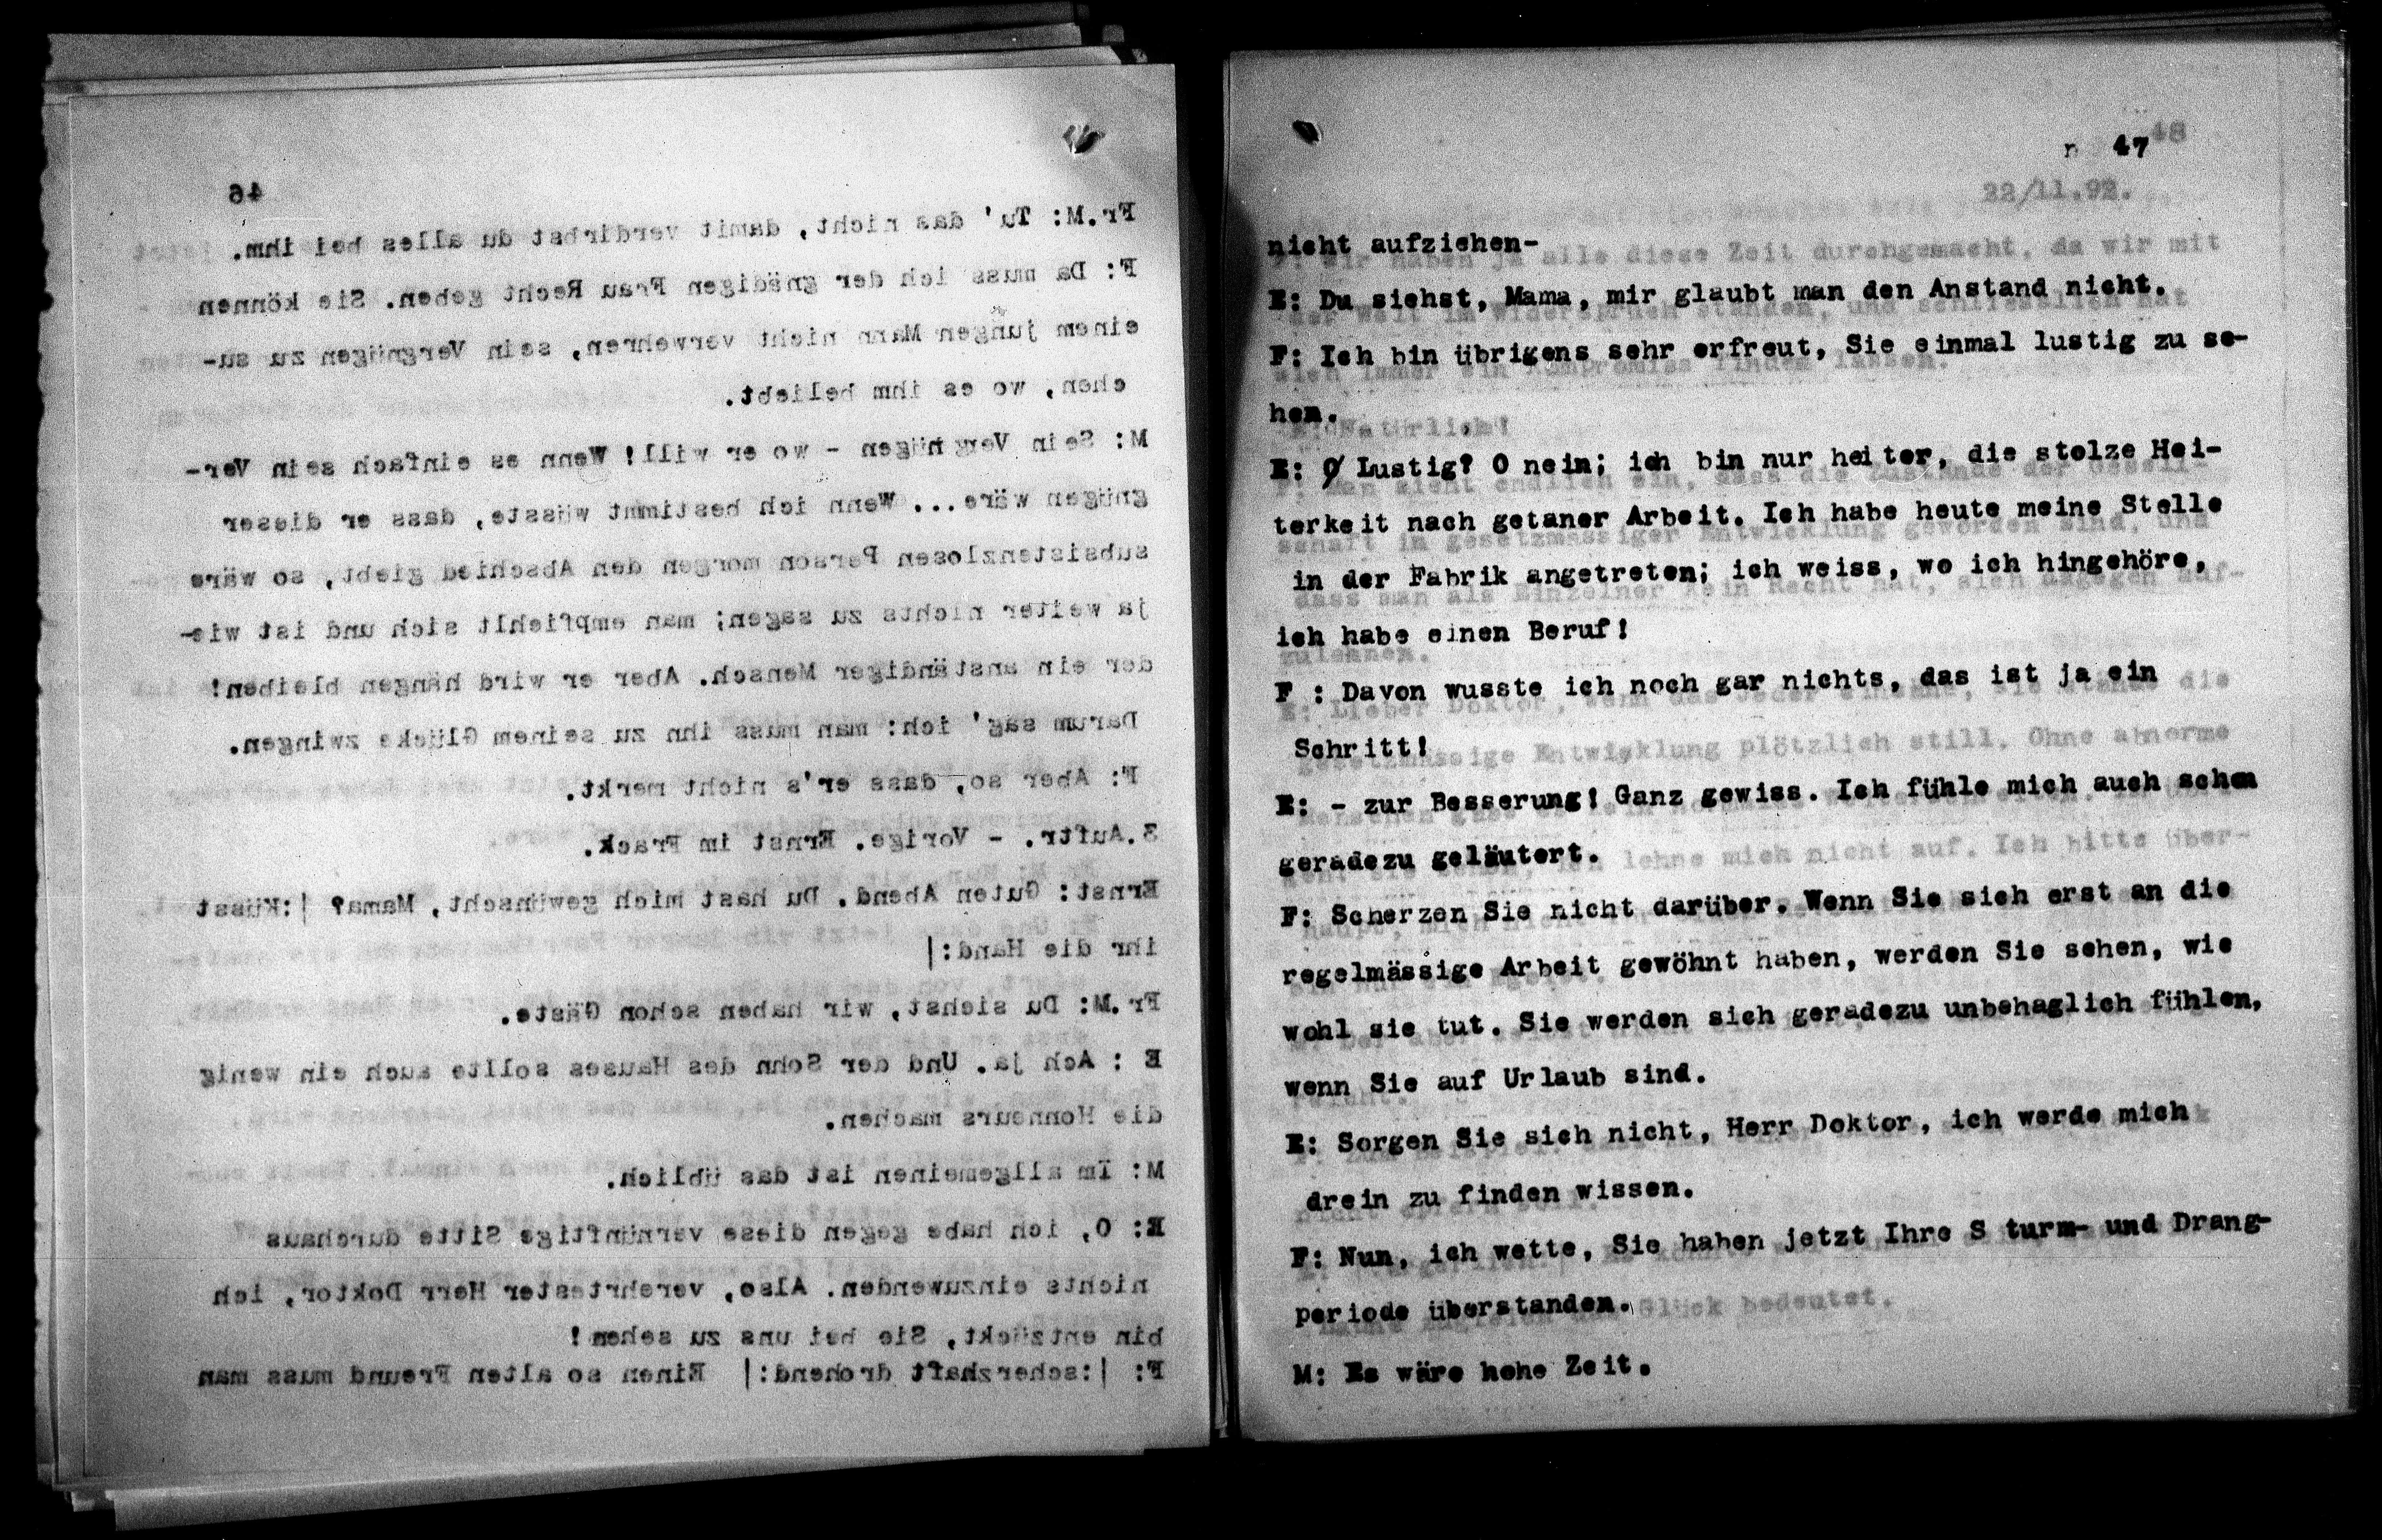 46
Fr.M: Tu' das nicht, damit verdirbst du alles bei ihm.
F: Da muss ich der gnädigen Frau Recht geben. Sie können
einem jungen Mann nicht verwehren, sein Vergnügen zu su-
chen, wo es ihm beliebt.
M: Sein Vergnügen - wo er will! Wenn es einfach sein Ver-
gnügen wäre... Wenn ich bestimmt wüsste, dass er dieser
subsistenzlosen Person morgen den Abschied giebt, so wäre
ja weiter nichts zu sagen; man empfiehlt sich und ist wie-
der ein anständiger Mensch. Aber er wird hängen bleiben!
Darum sag' ich: man muss ihn zu seinem Glücke zwingen.
F: Aber so, dass er's nicht merkt.
3.Auftr. - Vorige. Ernst im Frack.
Ernst: Guten Abend. Du hast mich gewünscht, Mama? |:Küsst
ihr die Hand:|
Fr.M: Du siehst, wir haben schon Gäste.
E : Ach ja. Und der Sohn des Hauses sollte auch ein wenig
die Honneurs machen.
M: Im allgemeinen ist das üblich.
E: O, ich habe gegen diese vernünftige Sitte durchaus
nichts einzuwenden. Also, verehrtester Herr Doktor, ich
bin entzückt, Sie bei uns zu sehen!
F: |:scherzhaft drohend:| Einen so alten Freund muss man
47
48
22/11.92.
nicht aufziehen-
E: Du siehst, Mama, mir glaubt man den Anstand nicht.
F: Ich bin übrigens sehr erfreut, Sie einmal lustig zu se-
hen.
E: Lustig? O nein; ich bin nur heiter, die stolze Hei-
terkeit nach getaner Arbeit. Ich habe heute meine Stelle
in der Fabrik angetreten; ich weiss, wo ich hingehöre,
ich habe einen Beruf!
F : Davon wusste ich noch gar nichts, das ist ja ein
Schritt!
E: - zur Besserung! Ganz gewiss. Ich fühle mich auch schon
geradezu geläutert.
F: Scherzen Sie nicht darüber. Wenn Sie sich erst an die
regelmässige Arbeit gewöhnt haben, werden Sie sehen, wie
wohl sie tut. Sie werden sich geradezu unbehaglich fühlen,
wenn Sie auf Urlaub sind.
E: Sorgen Sie sich nicht, Herr Doktor, ich werde mich
drein zu finden wissen.
F: Nun, ich wette, Sie haben jetzt Ihre S turm- und Drang-
periode überstanden.
M: Es wäre hohe Zeit.